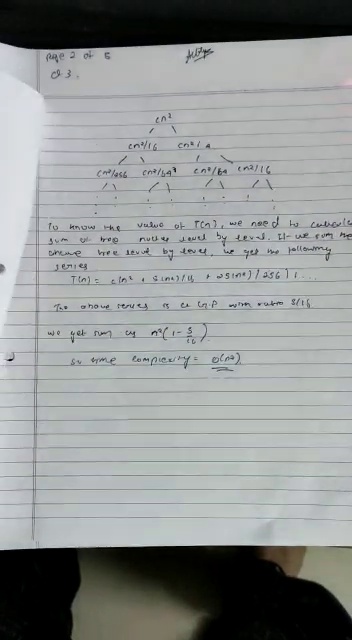 Page 2 of 5
Q 3.
cn²
cn²/16 cn²/4
cn²/256 cn²/64 cn²/64 cn²/16
To know the value of T(n), we need to calculate
sum of tree nodes level by level. If we sum the
above tree level by level, we get the following
series
T(n) = c(n² + 5(n²)/16 + 25(n²)/256) + ...
The above series is a G.P with ratio 5/16
we get sum as n²(1 - 5/16)
So time complexity = O(n²)